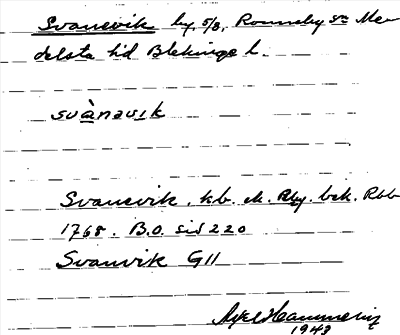 Svanevik by, 5/8, Ronneby sn Me-
delsta hd Blekinge l.
svànəvik
Svanevik. kb. ek. Rby. bek. Rbb
1768. B.O. sid 220
Svanvik G11
Axel Hammering
1943